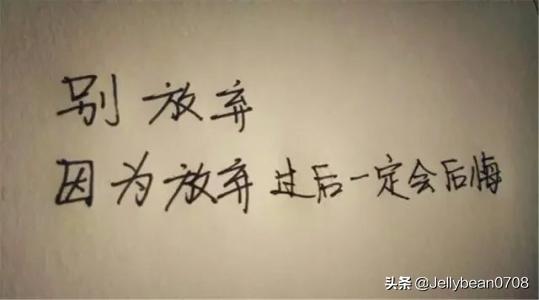 别放弃
因为放弃过后一定会后悔
头条 @Jellybean0708